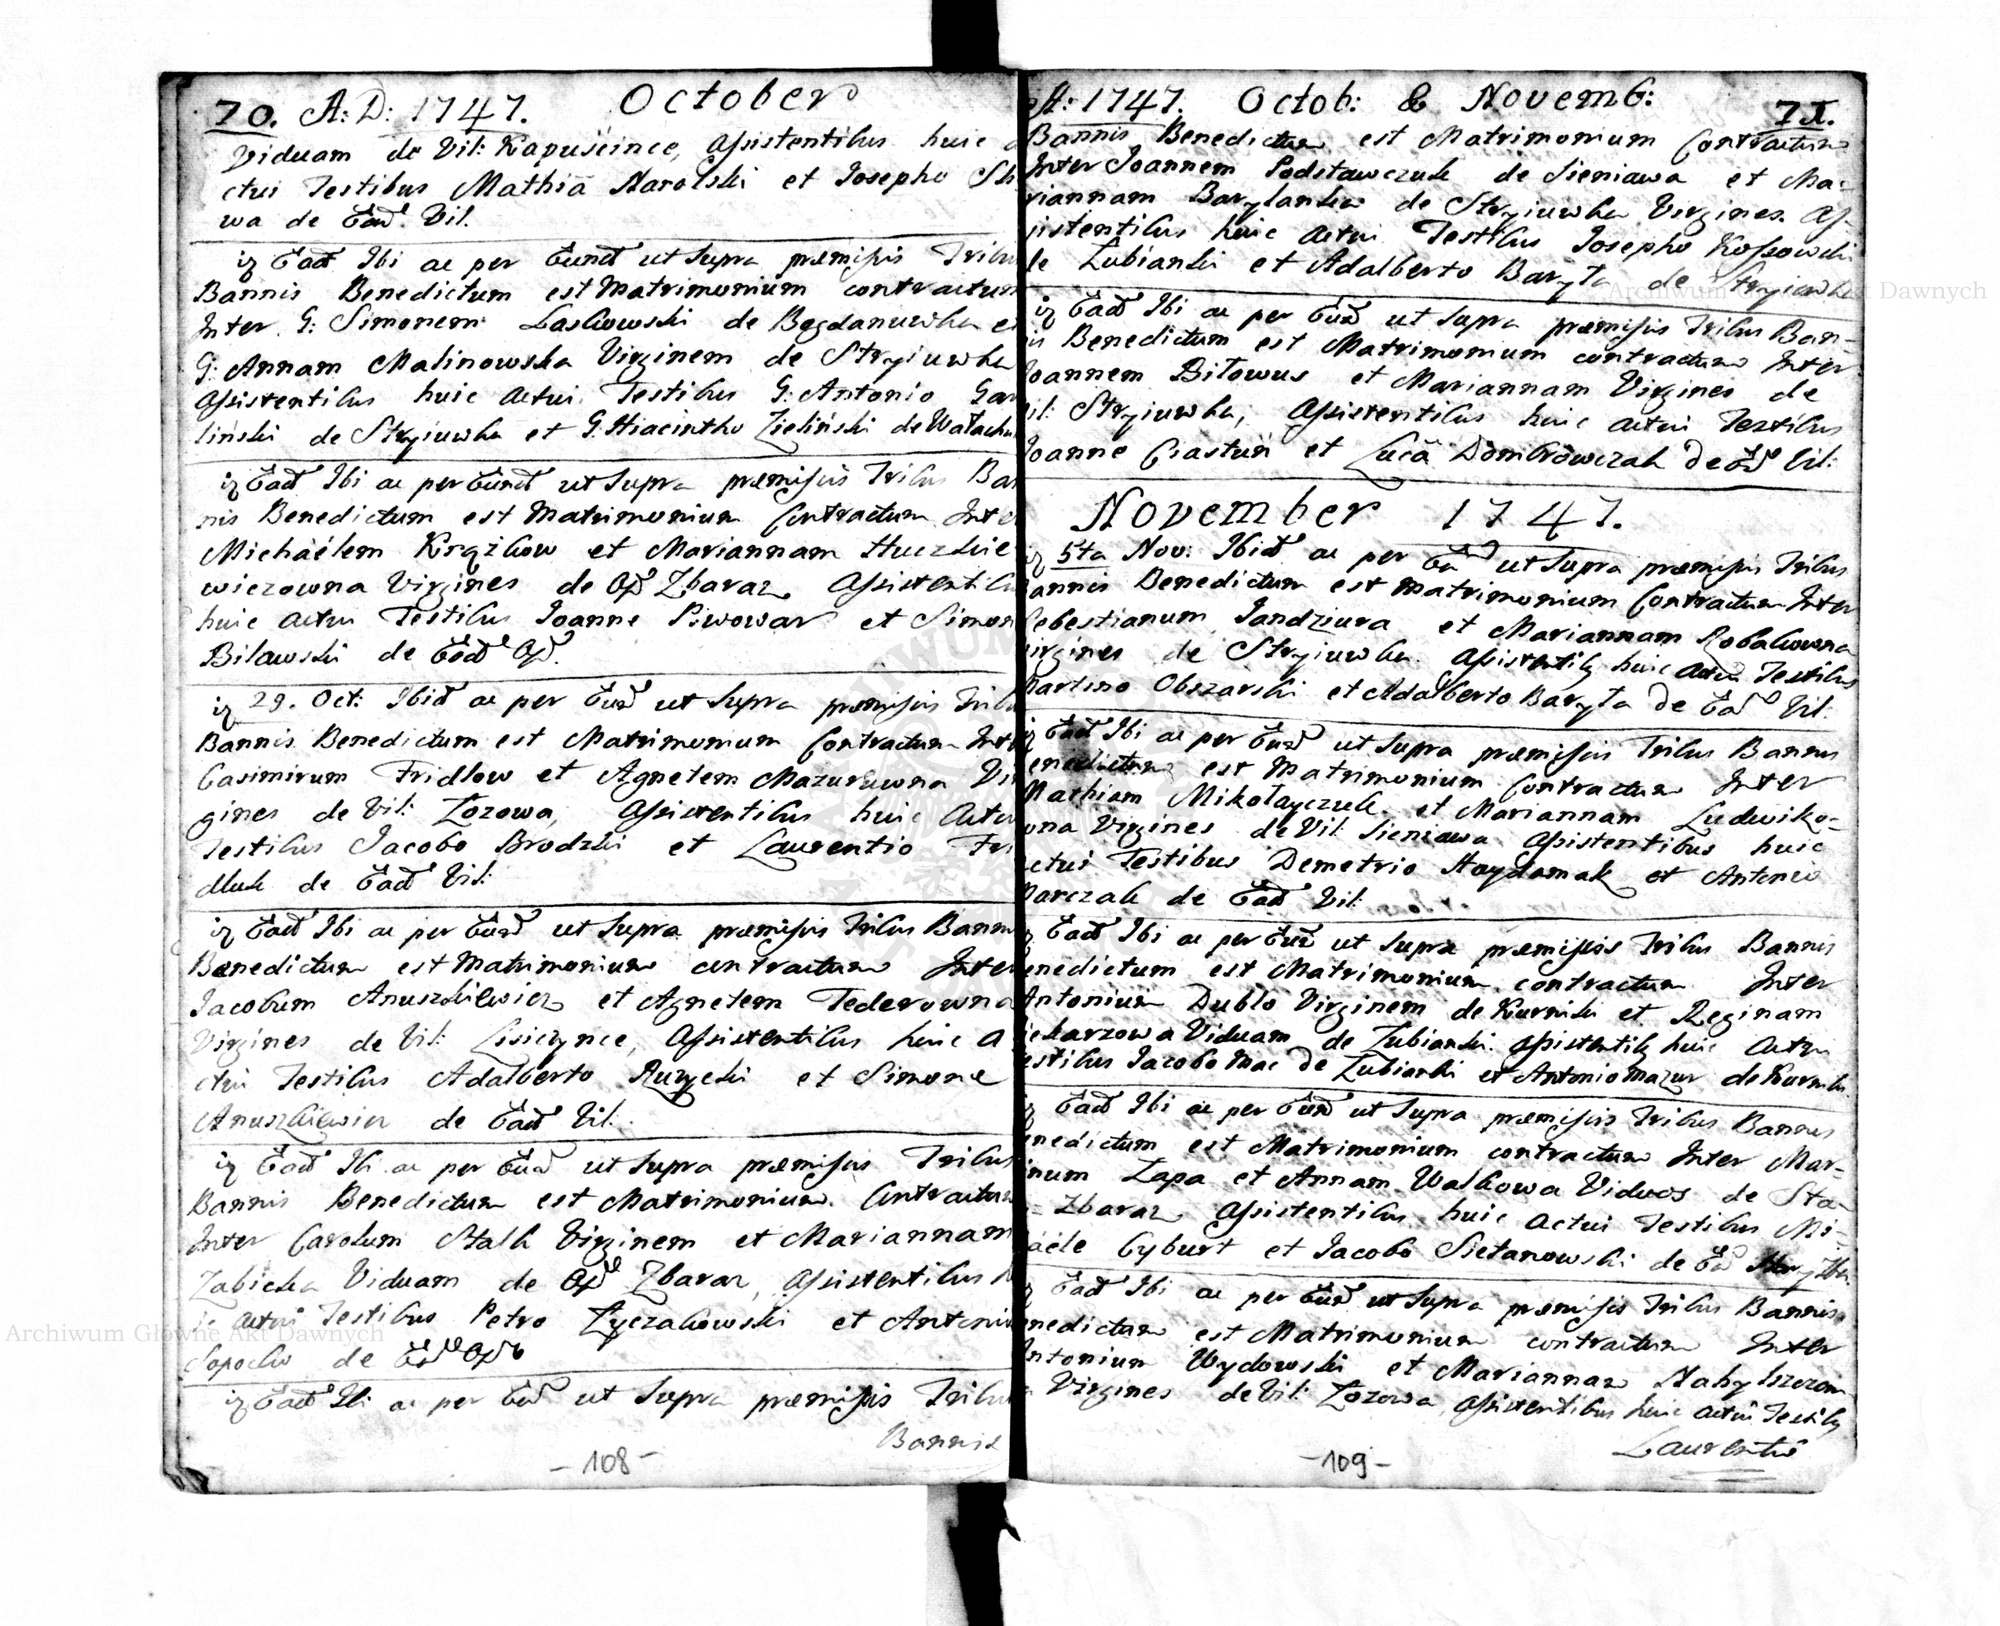 70. A: D: 1747. October
Viduam de Vil: Kapuscince, Assistentibus huic a
ctui Testibus Mathia Narolski et Josepho Sh
wa de Ead. Vil.
Ead Ibi ac per Eund ut Supra præmissis Tribu
Bannis Benedictum est Matrimonium contractum
Inter G: Simonem Laskowski de Bogdanuwka et
G: Annam Malinowska Virginem de Stryiuwka
Assistentibus huic Actui Testibus G: Antonio Gar
liński de Stryiuwka et G. Hiacintho Zieliński de Wałachu
Ead Ibi ac per Eund ut Supra præmissis Tribus Ban
nis Benedictum est Matrimonium Contractum Inte
Michäelem Krążkow et Mariannam Huczkie
wiczowna Virgines de Opd Zbaraz Assistentibu
huic Actui Testibus Joanne Piwowar et Simon
Bilawski de Ead Opd.
29. Oct: Ibid ac per Eund ut Supra præmissis Tribu
Bannis Benedictum est Matrimonium Contractum Int
Casimirum Fridlow et Agnetem Mazuruwna Vir
gines de Vil: Łozowa, Assistentibus huic Actu
Testibus Jacobo Brodzki et Laurentio Fri
dluk de Ead Vil:
Ead Ibi ac per Eund ut Supra præmissis Tribus Bann
Benedictum est Matrimonium contractum Inter
Jacobum Anuszkiewicz et Agnetem Federowna
Virgines de Vil: Lisiczynce, Assistentibus huic A
ctui Testibus Adalberto Ruzycki et Simone
Anuszkiewicz de Ead Vil:
Ead Ibi ac per Eund ut Supra præmissis Tribus
Bannis Benedictum est Matrimonium Contractum
Inter Carolum Stalk Virginem et Mariannam
Zabicka Viduam de Opd Zbaraz, Assistentibus h
ic Actui Testibus Petro Łyczakowski et Antonio
Sopocko de Ead Opd
Ead Ibi ac per Eund ut Supra præmissis Tribu
Bannis
- 108 -
A: 1747. Octob: & Novemb: 71.
Bannis Benedictum est Matrimonium Contractum
Inter Joannem Podstawczuk de Sieniawa et Ma-
riannam Barylanka de Stryiuwka Virgines. As-
sistentibus huic Actui Testibus Josepho Kossowski
de Lubianki et Adalberto Baryła de Stryiuwka
Ead Ibi ac per Eund ut Supra præmissis Tribus Ban-
nis Benedictum est Matrimonium contractum Inter
Joannem Bitowus et Mariannam Virgines de
Vil: Stryiuwka, Assistentibus huic Actui Testibus
Joanne Chastun et Luca Dombrowczak de Ead Vil:
November 1747.
5ta Nov: Ibid ac per Eund ut Supra præmissis Tribus
Bannis Benedictum est Matrimonium Contractum Inter
Sebestianum Jandziura et Mariannam Robakowna
Virgines de Stryiuwka. Assistentibq huic Actui Testibus
Martino Obszarski et Adalberto Baryła de Ead Vil:
Ead Ibi ac per Eund ut Supra præmissis Tribus Bannis
enedictum est Matrimonium Contractum Inter
Mathiam Mikołayczuk et Mariannam Ludwiko-
wna Virgines de Vil: Sieniawa Assistentibus huic
Actui Testibus Demetrio Haydamak et Antonio
Marczak de Ead Vil:
Ead Ibi ac per Eund ut Supra præmissis Tribus Bannis
enedictum est Matrimonium contractum Inter
Antonium Dublo Virginem de Kurniki et Reginam
iekarzowa Viduam de Lubianki. Assistentibq huic Actui
estibus Jacobo Mac de Lubianki et Antonio Mazur de Kurniki
Ead Ibi ac per Eund ut Supra præmissis Tribus Bannis
enedictum est Matrimonium contractum Inter Mar-
inum Łapa et Annam Walkowa Viduos de Sta-
Zbaraz Assistentibus huic Actui Testibus Mi-
äele Cyburt et Jacobo Sietanowski de Ead
Ead Ibi ac per Eund ut Supra præmissis Tribus Bannis
enedictum est Matrimonium contractum Inter
Antonium Wydowski et Mariannam
Virgines de Vil: Łozowa, Assistentibus huic Actui Testibq
Laurentio
- 109 -
Archiwum Główne Akt Dawnych
Archiwum Główne Akt Dawnych